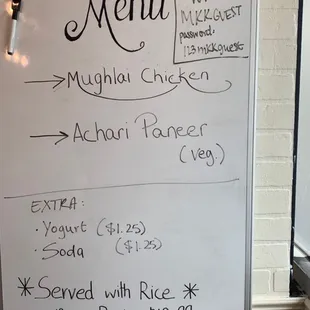 Menu
MKKGUEST
password:
123mkkguest
→ Mughlai Chicken
→ Achari Paneer
(veg.)
EXTRA:
· Yogurt ($1.25)
· Soda ($1.25)
* Served with Rice *